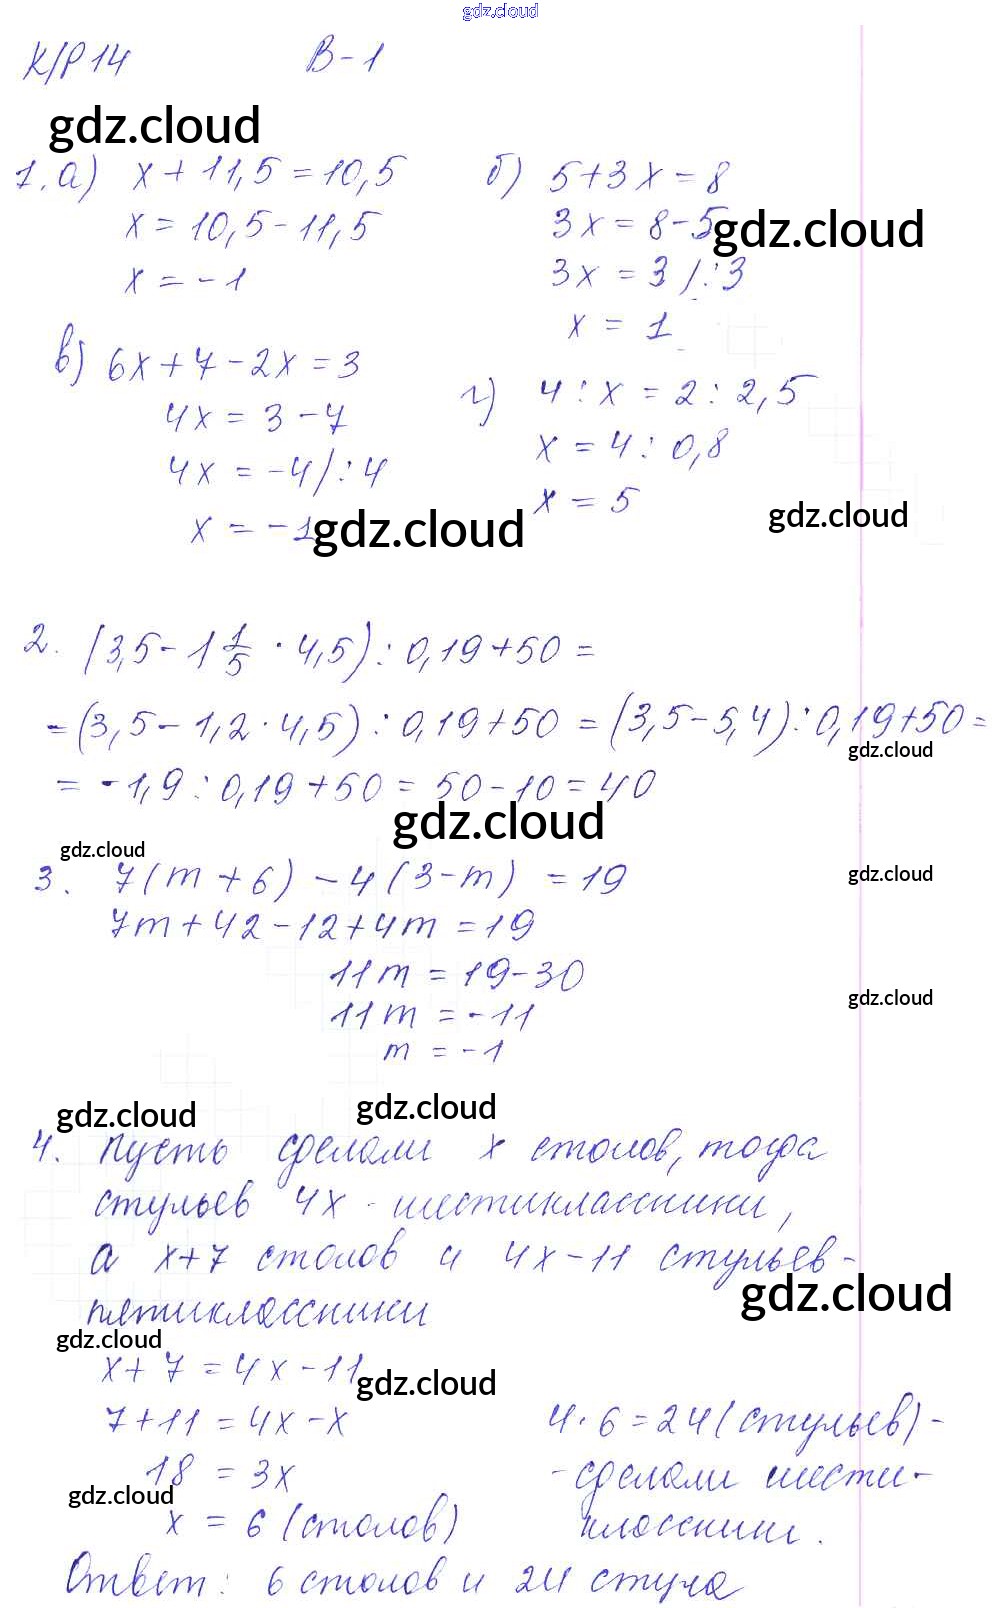 gdz.cloud
К/Р 14 В-1
gdz.cloud
1. а) x + 11,5 = 10,5
x = 10,5 - 11,5
x = - 1
б) 5 + 3x = 8
3x = 8 - 5 gdz.cloud
3x = 3 /:3
x = 1
в) 6x + 7 - 2x = 3
4x = 3 - 7
4x = -4 /:4
x = -1 gdz.cloud
г) 4 : x = 2 : 2,5
x = 4 : 0,8
x = 5
gdz.cloud
2. (3,5 - 1 1/5 · 4,5) : 0,19 + 50 =
= (3,5 - 1,2 · 4,5) : 0,19 + 50 = (3,5 - 5,4) : 0,19 + 50 =
gdz.cloud
= -1,9 : 0,19 + 50 = 50 - 10 = 40
gdz.cloud
gdz.cloud
gdz.cloud
3. 7(m + 6) - 4(3 - m) = 19
7m + 42 - 12 + 4m = 19
11m = 19 - 30
gdz.cloud
11m = -11
m = -1
gdz.cloud gdz.cloud
4. Пусть сделали x столов, тогда
стульев 4x - шестиклассники,
а x+7 столов и 4x - 11 стульев -
gdz.cloud
пятиклассники
gdz.cloud
x + 7 = 4x - 11
gdz.cloud
7 + 11 = 4x - x
18 = 3x
gdz.cloud
x = 6 (столов)
4 · 6 = 24 (стульев) -
- сделали шести-
классники.
Ответ: 6 столов и 24 стула